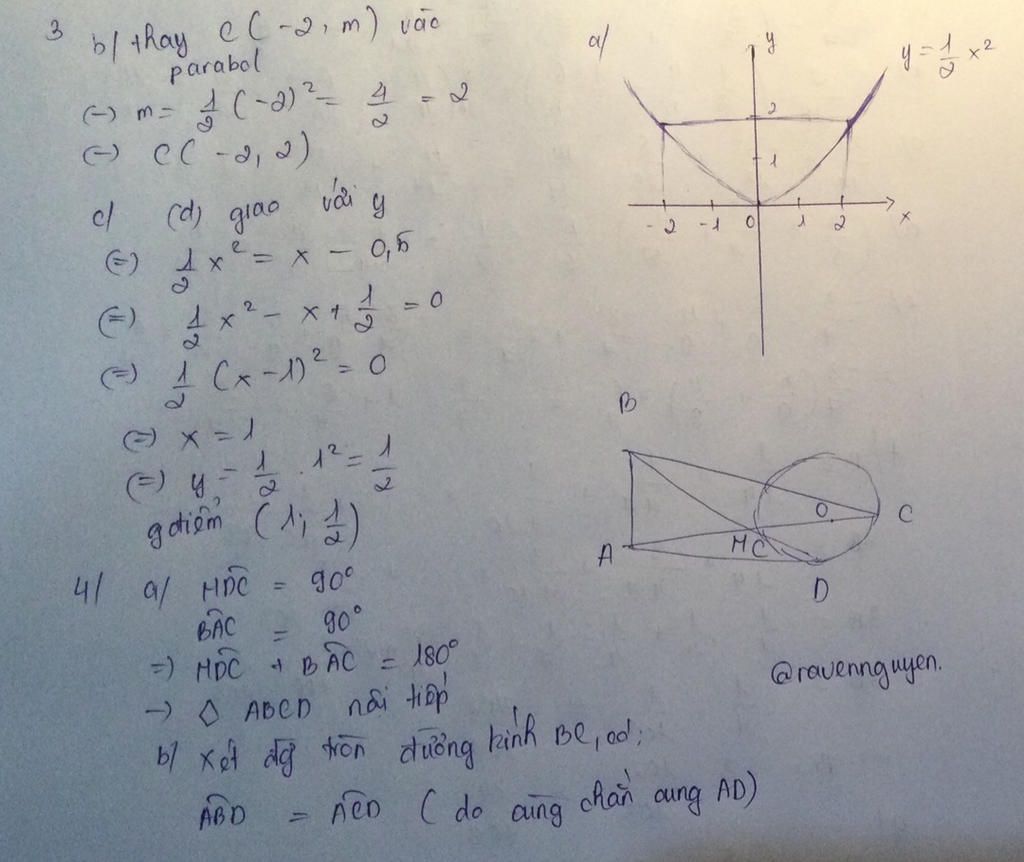 3
b/ thay C(-2, m) vào
parabol
(-) m = 1/2 (-2)² = 4/2 = 2
(-) C(-2, 2)
c/ (d) giao với y
(=) 1/2 x² = x - 0,5
(=) 1/2 x² - x + 1/2 = 0
(=) 1/2 (x-1)² = 0
(=) x = 1
(=) y = 1/2 . 1² = 1/2
gđiểm (1; 1/2)
a/
y
y = 1/2 x²
2
1
-2 -1 0 1 2 x
B
A
M
O
C
D
4/ a/ MDC = 90°
BAC = 90°
=) MDC + BAC = 180°
-) ABCD nội tiếp
b/ xét đg tròn đường kính BC, có:
ABD = ACD (do cùng chắn cung AD)
@ravennguyen.